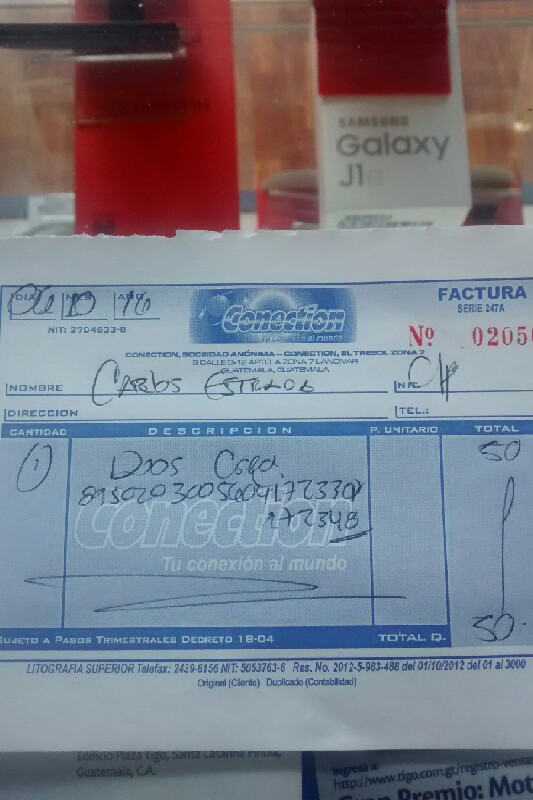 SAMSUNG
Galaxy
J1
DIA MES AÑO
06 10 16
NIT: 2704633-8
Conection
Tu conexión al mundo
FACTURA
SERIE 247A
Nº 0205
CONECTION, SOCIEDAD ANÓNIMA - CONECTION, EL TREBOL ZONA 7
3 CALLE 5-12 APTO A ZONA 7 LANDIVAR
GUATEMALA, GUATEMALA
NOMBRE Carlos Estrada NIT. C/F
DIRECCION TEL.:
CANTIDAD DESCRIPCION P. UNITARIO TOTAL
1 50
172348
Conection
Tu conexión al mundo
SUJETO A PAGOS TRIMESTRALES DECRETO 18-04 TOTAL Q. 50.
LITOGRAFIA SUPERIOR Telefax: 2439-6156 NIT: 5053763-6 Res. No. 2012-5-983-488 del 01/10/2012 del 01 al 3000
Original (Cliente) Duplicado (Contabilidad)
Edificio Plaza Tigo, Santa Catarina Pinula,
Guatemala, C.A.
Ingresa a:
http://www.tigo.com.gt/registro-venta
Gran Premio: Mot